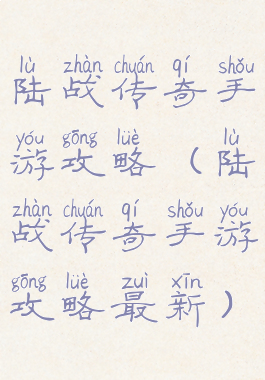 lù zhàn chuán qí shǒu
陆战传奇手
yóu gōng lüè lù
游攻略（陆
zhàn chuán qí shǒu yóu
战传奇手游
gōng lüè zuì xīn
攻略最新）